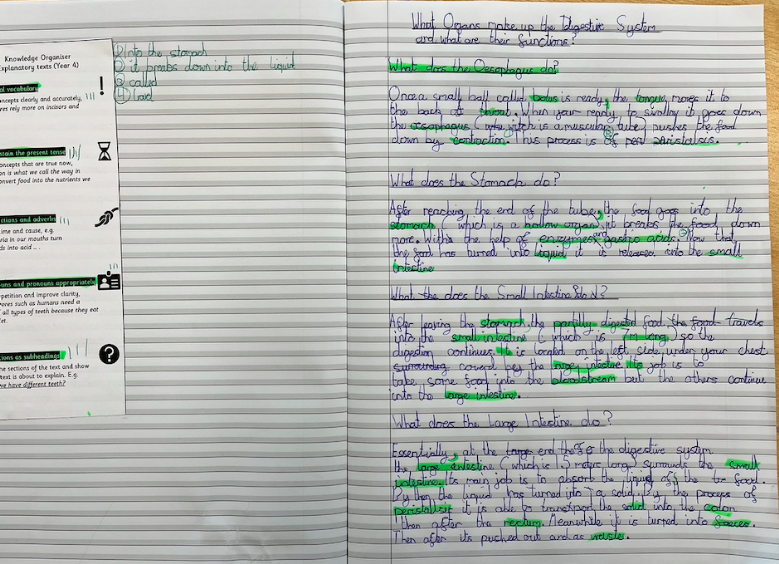 Knowledge Organiser
Explanatory texts (Year 4)
al vocabulary
oncepts clearly and accurately,
res rely more on incisors and
ntain the present tense
oncepts that are true now,
on is what we call the way in
onvert food into the nutrients we
ctions and adverbs
ime and cause, e.g.
ria in our mouths turn
ds into acid ...
uns and pronouns appropriately
petition and improve clarity,
ores such as humans need a
f all types of teeth because they eat
et.
ions as subheadings
he sections of the text and show
text is about to explain. E.g.
we have different teeth?
① Into the stomach
② it breaks down into the liquid
③ called
④ food
What Organs make up the Digestive System
and what are their functions?
What does the Oesophagus do?
Once a small ball called bolus is ready, the tongue moves it to
the back of throat. When your ready to swallow it goes down
the oesophagus ( witch is a muscular tube) pushes the food
down by contraction. This process is peristalsis.
What does the Stomach do?
After reaching the end of the tube, the food goes into the
stomarch ( which is a hollow organ), it breaks the food down
more. With the help of enzymes and gastric acids. Now that
the food has turned into liquid it is released into the small
intestine
What the does the Small Intestine do?
After leaving the stomach, the partilly digested food the food travels
into the small intestine ( which is 7m long) so the
digestion continues. It is located on the left side, under your chest
surrounding covered by the large intestine. Its job is to
take some food into the bloodstream but the others continue
into the large intestine.
What does the Large Intestine do?
Essentially, at the end the of the digestive system
the large intestine ( which is 1.5 metres long) surrounds the small
intestine. Its main job is to absorb the liquid of the food.
By then the liquid has turned into a solid. By the process of
peristalsis it is able to transport the solid into the colon
then after the rectum. Meanwhile it is turned into faeces.
Then after its pushed out and as waste.